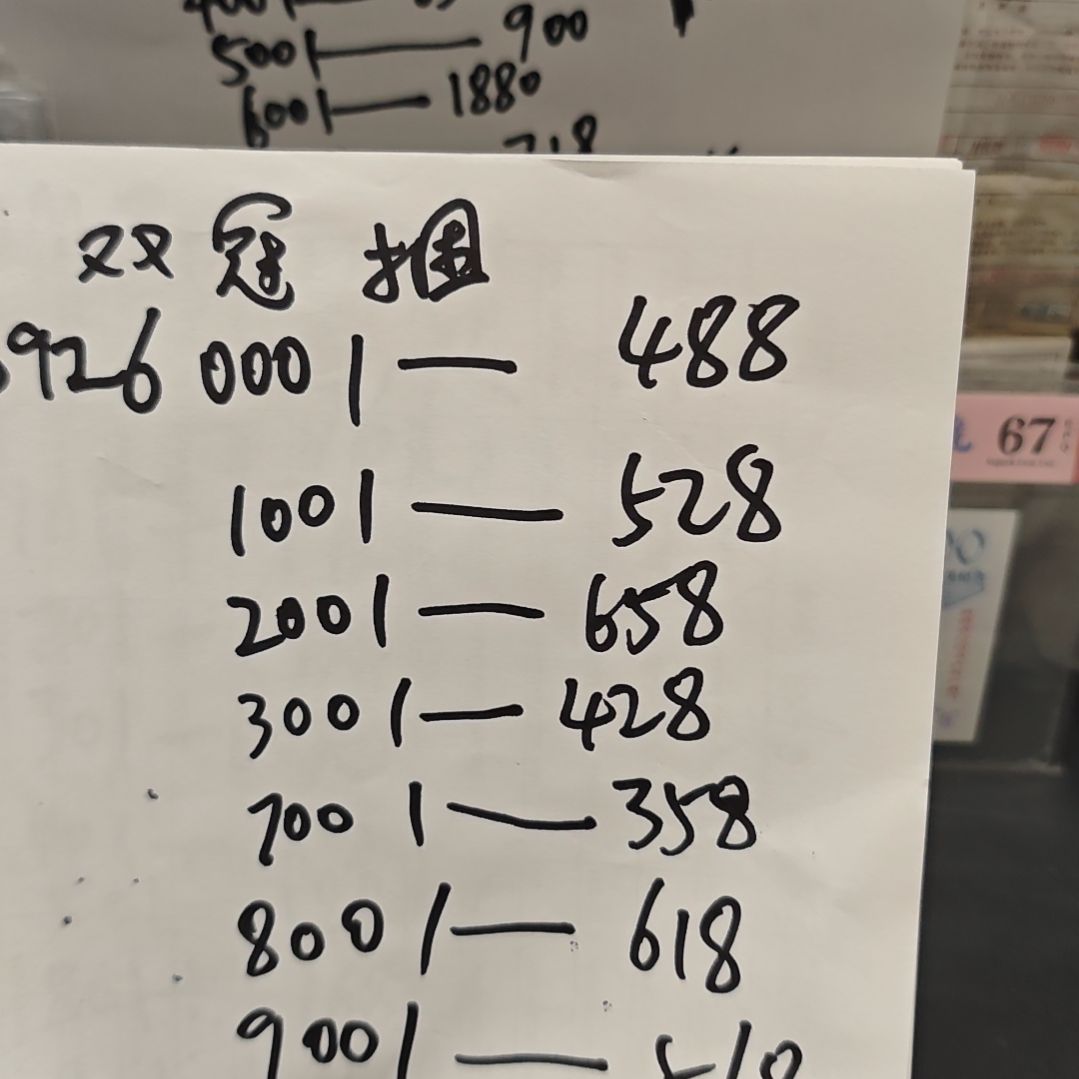 5001 — 900
6001 — 1880
718
双冠 捆
926 0001 — 488
1001 — 528
2001 — 658
3001 — 428
7001 — 358
8001 — 618
9001 —
67